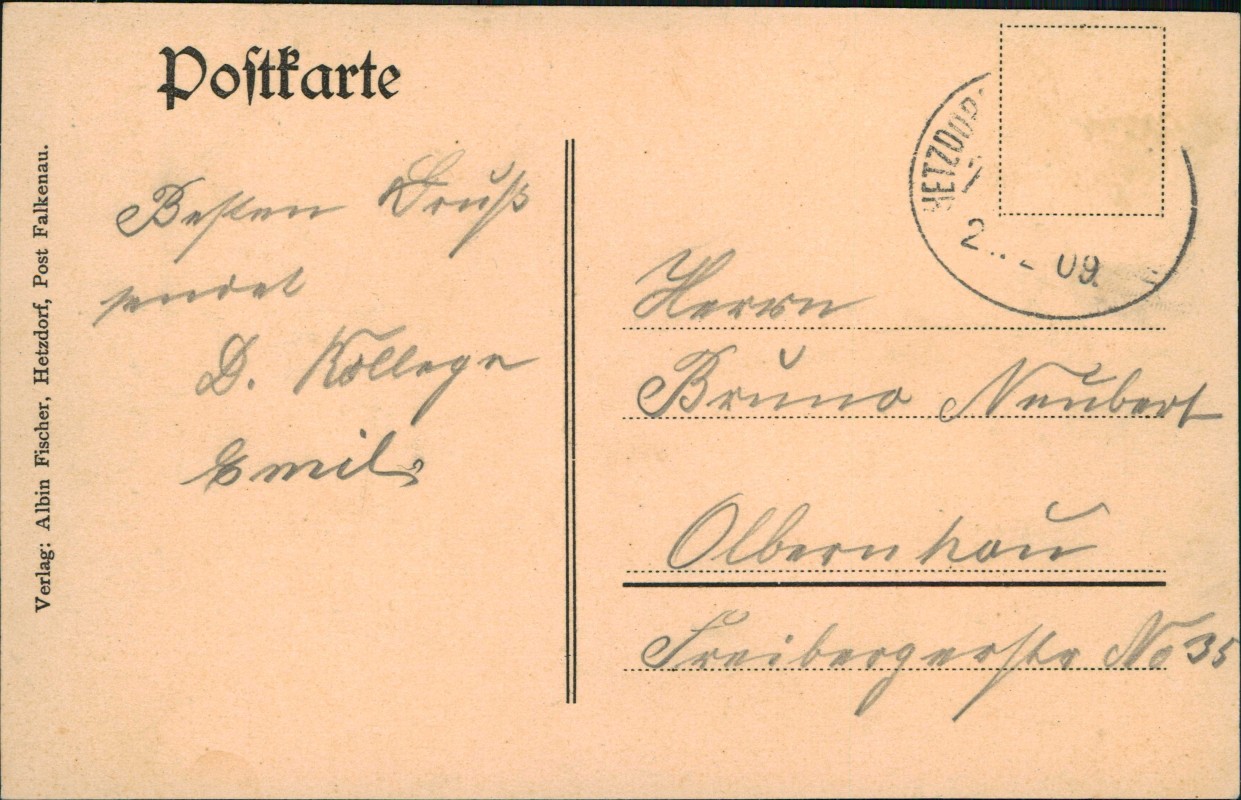 Postkarte
Verlag: Albin Fischer, Hetzdorf, Post Falkenau.
Besten Gruß
sendet
D. Kollege
Emil
HETZDOR
09.
Herrn
Bruno Neubert
Olbernhau
Freibergerstr No 35